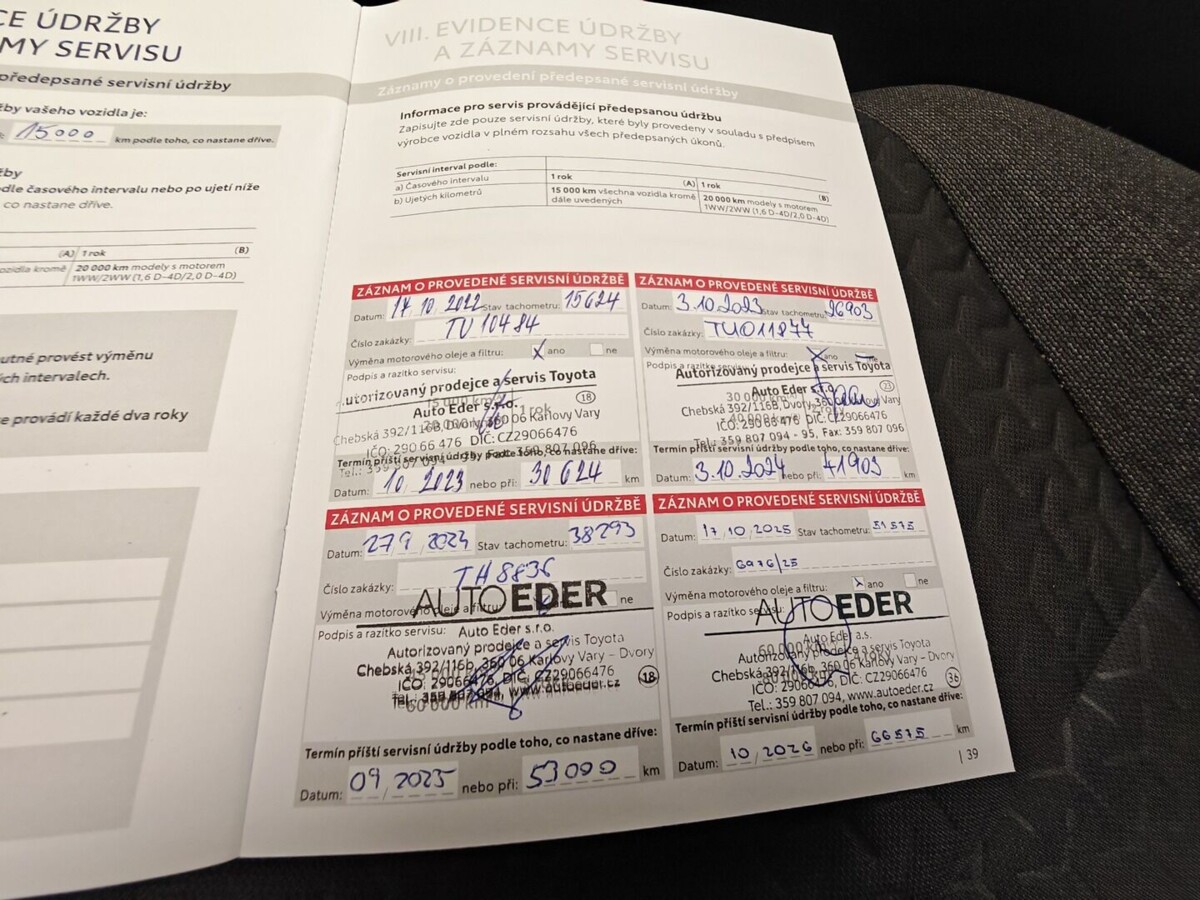 CE ÚDRŽBY
MY SERVISU
předepsané servisní údržby
žby vašeho vozidla je:
15000 km podle toho, co nastane dříve.
žby
dle časového intervalu nebo po ujetí níže
co nastane dříve.
(A) 1 rok (B)
vozidla kromě 20 000 km modely s motorem
1WW/2WW (1,6 D-4D/2,0 D-4D)
utné provést výměnu
ch intervalech.
e provádí každé dva roky
VIII. EVIDENCE ÚDRŽBY
A ZÁZNAMY SERVISU
Záznamy o provedení předepsané servisní údržby
Informace pro servis provádějící předepsanou údržbu
Zapisujte zde pouze servisní údržby, které byly provedeny v souladu s předpisem
výrobce vozidla v plném rozsahu všech předepsaných úkonů.
Servisní interval podle:
a) Časového intervalu 1 rok (A) 1 rok (B)
b) Ujetých kilometrů 15 000 km všechna vozidla kromě 20 000 km modely s motorem
dále uvedených 1WW/2WW (1,6 D-4D/2,0 D-4D)
ZÁZNAM O PROVEDENÉ SERVISNÍ ÚDRŽBĚ
Datum: 17 10. 2022 Stav tachometru: 15624
Číslo zakázky: TU 10484
Výměna motorového oleje a filtru: X ano ne
Podpis a razítko servisu:
Autorizovaný prodejce a servis Toyota
Auto Eder s.r.o. 18
Chebská 392/116B, Dvory, 360 06 Karlovy Vary
IČO: 290 66 476 DIČ: CZ29066476
Tel.: 359 807 094 - 95, Fax: 359 807 096
Termín příští servisní údržby podle toho, co nastane dříve:
Datum: 10. 2023 nebo při: 30 624 km
ZÁZNAM O PROVEDENÉ SERVISNÍ ÚDRŽBĚ
Datum: 3.10.2023 Stav tachometru: 26903
Číslo zakázky: TUO11877
Výměna motorového oleje a filtru: X ano ne
Podpis a razítko servisu:
Autorizovaný prodejce a servis Toyota
Auto Eder s.r.o. 23
30 000 km
Chebská 392/116B, Dvory, 360 06 Karlovy Vary
IČO: 290 66 476 DIČ: CZ29066476
Tel.: 359 807 094 - 95, Fax: 359 807 096
Termín příští servisní údržby podle toho, co nastane dříve:
Datum: 3.10.2024 nebo při: 41903 km
ZÁZNAM O PROVEDENÉ SERVISNÍ ÚDRŽBĚ
Datum: 27 9 2024 Stav tachometru: 38293
Číslo zakázky: TH 8836
Výměna motorového oleje a filtru: ne
AUTOEDER
Podpis a razítko servisu: Auto Eder s.r.o.
Autorizovaný prodejce a servis Toyota
Chebská 392/116b, 360 06 Karlovy Vary - Dvory
IČO: 29066476, DIČ: CZ29066476 18
Tel.: 359 807 094, www.autoeder.cz
60 000 km
Termín příští servisní údržby podle toho, co nastane dříve:
Datum: 09 2025 nebo při: 53000 km
ZÁZNAM O PROVEDENÉ SERVISNÍ ÚDRŽBĚ
Datum: 17 10 2025 Stav tachometru: 51575
Číslo zakázky: 6976/25
Výměna motorového oleje a filtru: X ano ne
AUTOEDER
Podpis a razítko servisu:
Auto Eder a.s.
Autorizovaný prodejce a servis Toyota
Chebská 392/116b, 360 06 Karlovy Vary - Dvory
IČO: 29066476, DIČ: CZ29066476 36
Tel.: 359 807 094, www.autoeder.cz
Termín příští servisní údržby podle toho, co nastane dříve:
Datum: 10 2026 nebo při: 66575 km
39